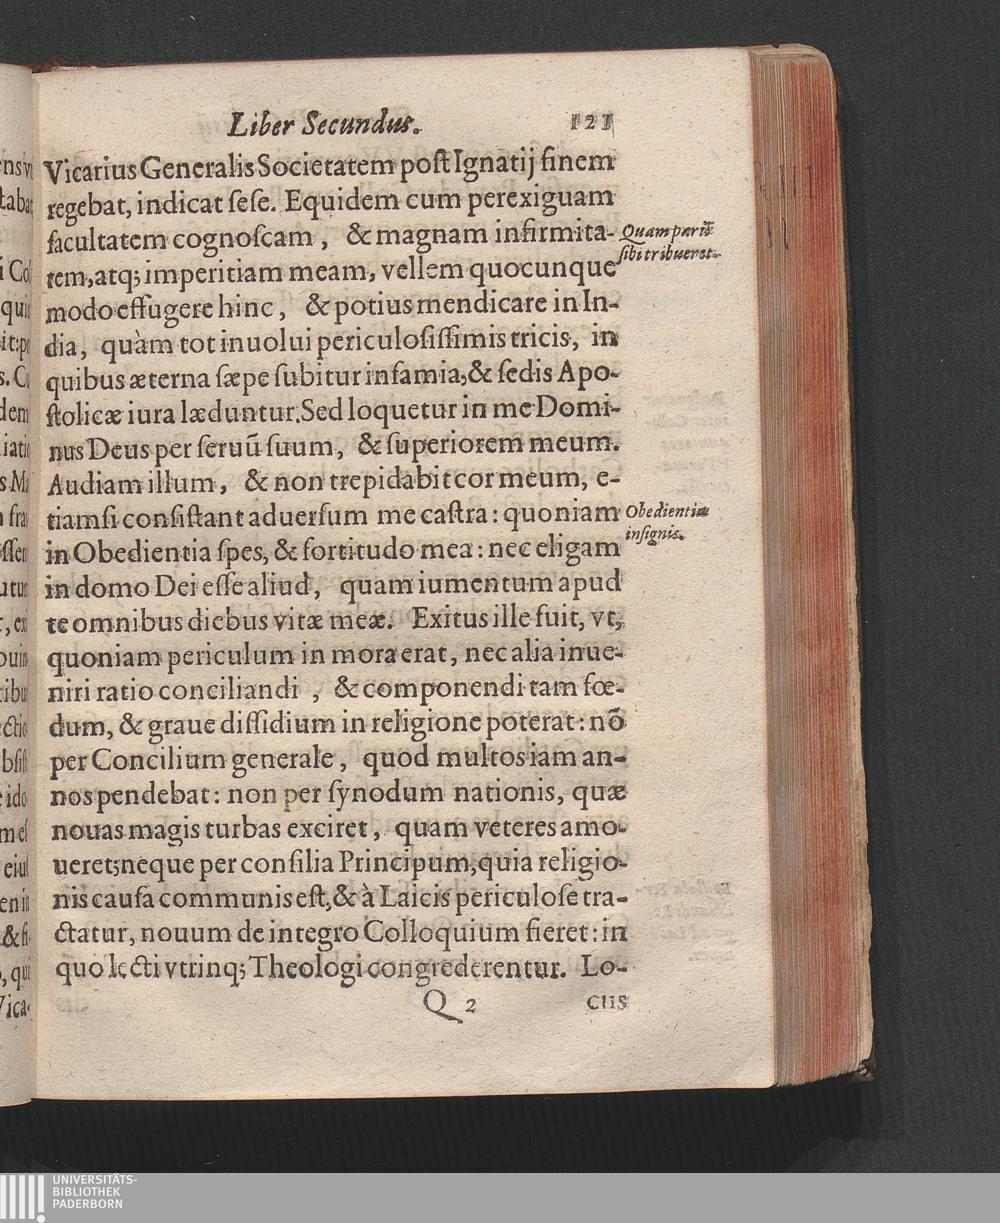 Liber Secundus. 121
Vicarius Generalis Societatem poſt Ignatij finem
regebat, indicat ſeſe. Equidem cum perexiguam
facultatem cognoſcam, & magnam infirmita-
tem, atq; imperitiam meam, vellem quocunque
modo effugere hinc, & potius mendicare in In-
dia, quàm tot inuolui periculoſiſſimis tricis, in
quibus æterna ſæpe ſubitur infamia, & ſedis Apo-
ſtolicæ iura læduntur. Sed loquetur in me Domi-
nus Deus per ſeruũ ſuum, & ſuperiorem meum.
Audiam illum, & non trepidabit cor meum, e-
tiamſi conſiſtant aduerſum me caſtra: quoniam
in Obedientia ſpes, & fortitudo mea: nec eligam
in domo Dei eſſe aliud, quam iumentum apud
te omnibus diebus vitæ meæ. Exitus ille fuit, vt,
quoniam periculum in mora erat, nec alia inue-
niri ratio conciliandi, & componendi tam fœ-
dum, & graue diſſidium in religione poterat: nõ
per Concilium generale, quod multos iam an-
nos pendebat: non per ſynodum nationis, quæ
nouas magis turbas exciret, quam veteres amo-
ueret; neque per conſilia Principum, quia religio-
nis cauſa communis eſt, & à Laicis periculoſe tra-
ctatur, nouum de integro Colloquium fieret: in
quo lecti vtrinq; Theologi congrederentur. Lo-
Q 2 ciis
Quam parũ
ſibi tribueret.
Obedientia
inſignis.
UNIVERSITÄTS-
BIBLIOTHEK
PADERBORN